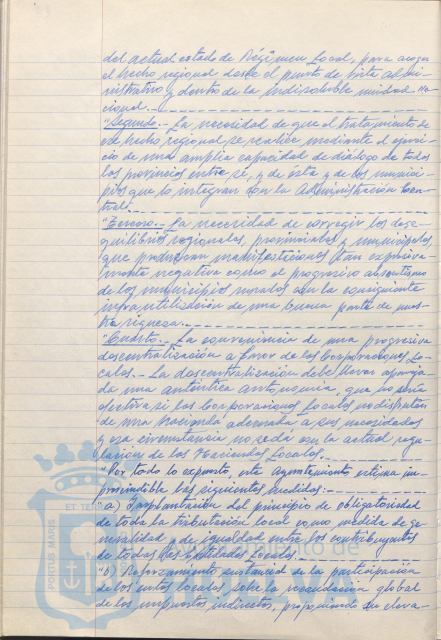 del actual estado de Régimen Local, para acoger
el hecho regional desde el punto de vista admi-
nistrativo y dentro de la indisoluble unidad na-
cional.
"Segundo.- La necesidad de que el tratamiento de
ese hecho regional se realice mediante el ejerci-
cio de una amplia capacidad de diálogo de todas
las provincias entre sí, y de ésta y de los munici-
pios que la integran con la Administración Cen-
tral.
"Tercero.- La necesidad de corregir los dese-
quilibrios regionales, provinciales y municipales
que produzcan manifestaciones tan expresiva-
mente negativa como el progresivo absentismo
de los municipios rurales con la consiguiente
infrautilización de una buena parte de nues-
tra riqueza.
"Cuarto.- La conveniencia de una progresiva
descentralización a favor de las Corporaciones Lo-
cales.- La descentralización debe llevar apareja-
da una auténtica autonomía, que no sería
efectiva si las Corporaciones Locales no disfrutan
de una Hacienda adecuada a sus necesidades
y esa circunstancia no se da con la actual regu-
lación de las Haciendas Locales.
"Por todo lo expuesto, este Ayuntamiento estima im-
prescindible las siguientes medidas:
"a) Implantación del principio de obligatoriedad
de toda la tributación local como medida de ge-
neralidad y de igualdad entre los contribuyentes
de todas las Entidades Locales.
"b) Reforzamiento sustancial de la participación
de los entes locales sobre la recaudación global
de los impuestos indirectos, propiciando su eleva-
PORTUS MARIS
ET TER